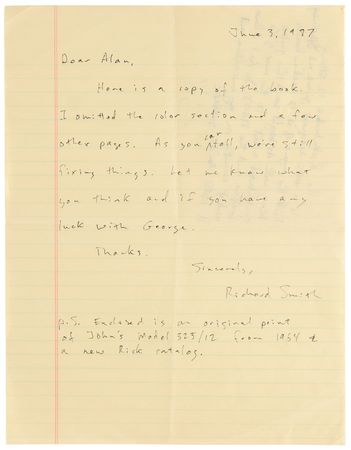 June 3, 1987
Dear Alan,
Here is a copy of the book.
I omitted the color section and a few
other pages. As you can tell, we're still
fixing things. Let me know what
you think and if you have any
luck with George.
Thanks.
Sincerely,
Richard Smith
p.s. Enclosed is an original print
of John's Model 325/12 from 1964 &
a new Rick catalog.